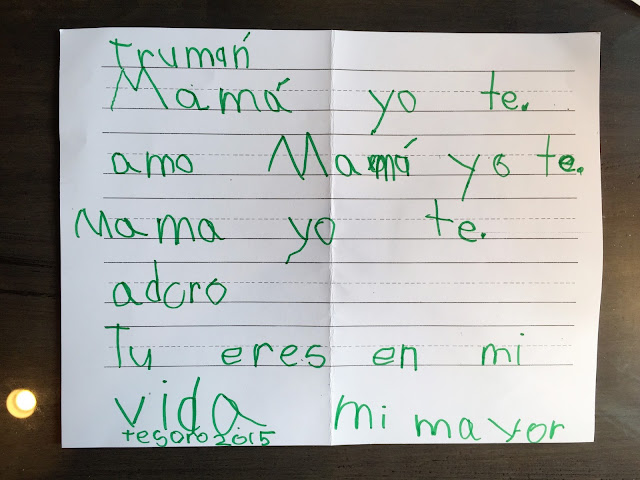 Trumań
Mamá yo te.
amo Mamá yo te.
Mama yo te.
adoro
Tu eres en mi
vida mi mayor
tesoro 2015